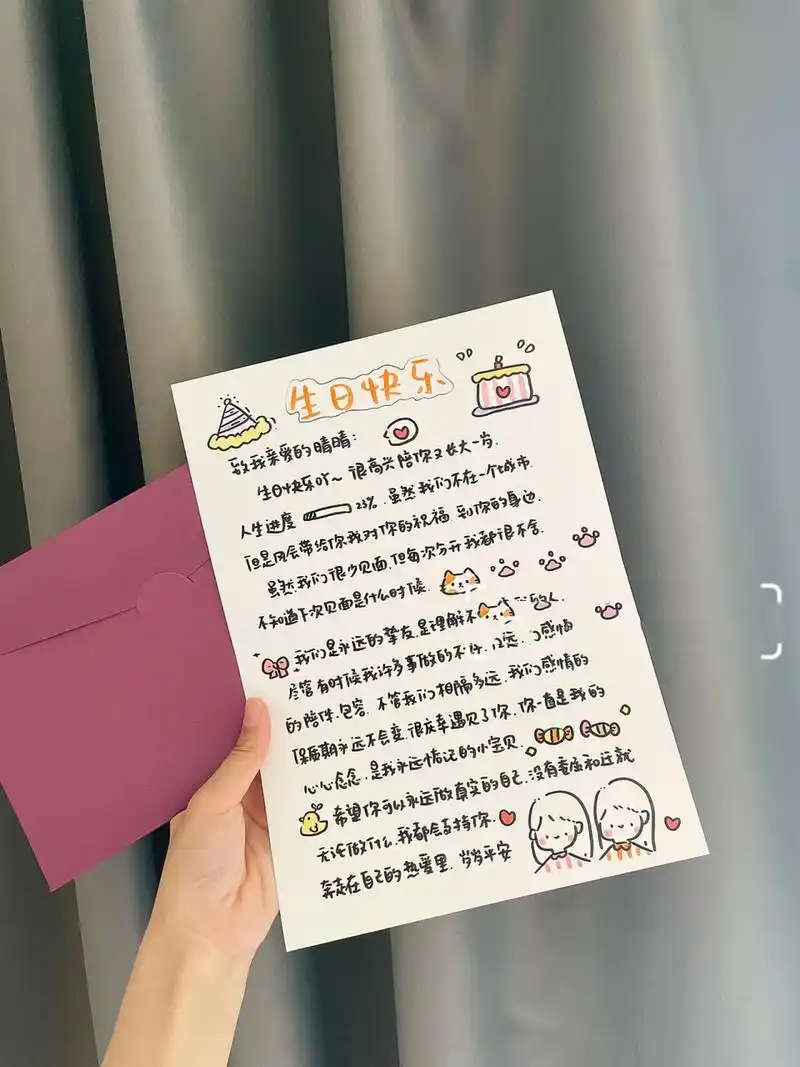 生日快乐
致我亲爱的晴晴：
生日快乐吖~ 很高兴陪你又长大一岁.
人生进度 23%. 虽然我们不在一个城市.
但是风会带给你我对你的祝福. 到你的身边.
虽然我们很少见面.但每次分开我都很不舍.
不知道下次见面是什么时候.
我们是永远的挚友.是理解 的人.
尽管有时候我许多事做的不
的陪伴.包容. 不管我们相隔多远. 我们感情的
保质期永远不会变.很庆幸遇见了你. 你一直是我的
心心念念. 是我永远惦记的小宝贝.
希望你可以永远做真实的自己.没有委屈和迁就
无论做什么.我都会支持你.
奔走在自己的热爱里. 岁岁平安